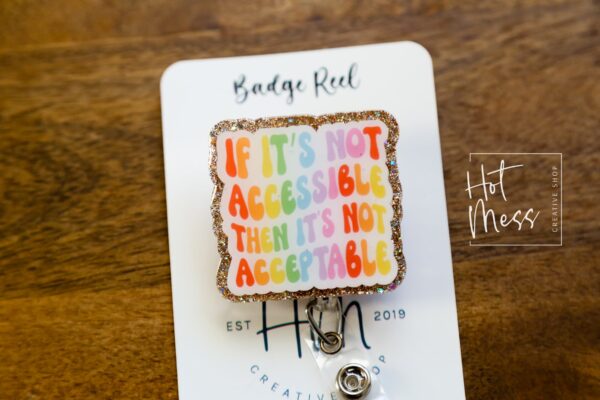 Badge Reel
IF IT'S NOT
ACCESSIBLE
THEN IT'S NOT
ACCEPTABLE
EST Hm 2019
CREATIVE SHOP
Hot
Mess
CREATIVE SHOP